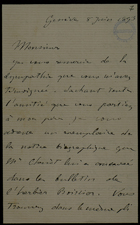 2
Genève 8 Juin 1893
Monsieur
Je vous remercie de la
sympathie que vous m'avez
témoignée. Sachant toute
l'amitié que vous portiez
à mon père je vous
envoie un exemplaire de
la notice biographique que
Mr Christ lui a consacré
dans le bulletin de
l'herbier Boissier. Vous
trouverez dans le même pli